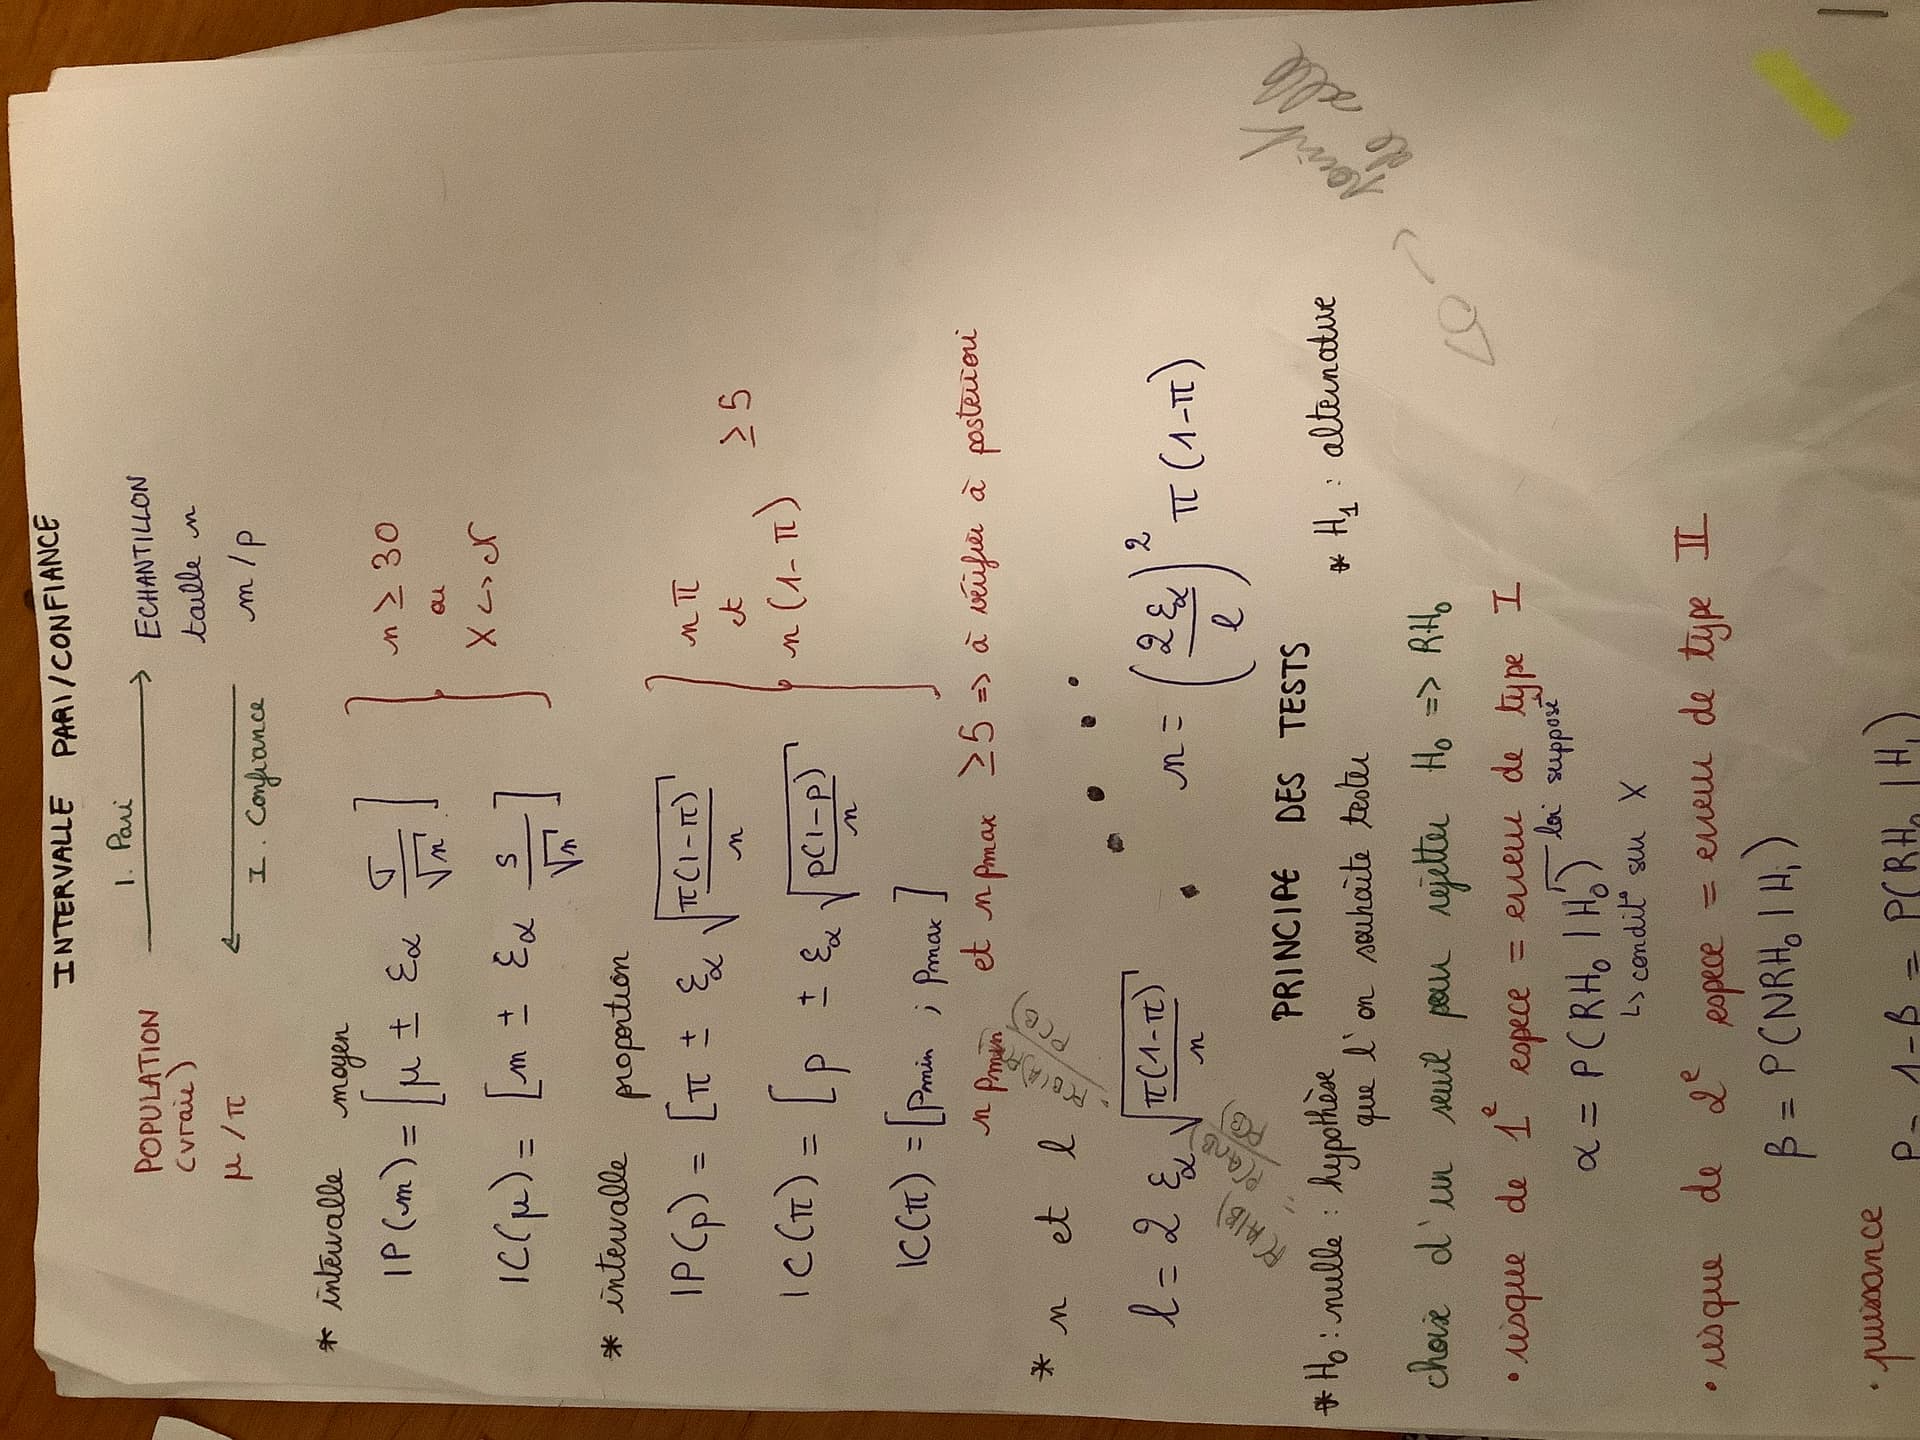 INTERVALLE PARI/CONFIANCE
1. Pari
POPULATION
(vraie)
μ/π
ECHANTILLON
taille n
m/p
I. Confiance
* intervalle moyen
IP(m) = [μ ± εα σ/√n]
IC(μ) = [m ± εα s/√n]
n ≥ 30
ou
X ↪ N
* intervalle proportion
IP(p) = [π ± εα √(π(1-π)/n)
IC(π) = [p ± εα √(p(1-p)/n)
nπ
et
n(1-π)
≥ 5
IC(π) = [pmin ; pmax]
n pmin et n pmax ≥ 5 => à vérifier à posteriori
* n et l
l = 2 εα √(π(1-π)/n)
n = (2εα/l)² π(1-π)
PRINCIPE DES TESTS
* H₀ : nulle : hypothèse
que l'on souhaite tester
* H₁ : alternative
choix d'un seuil pour rejetter H₀ => RH₀
• risque de 1e espece = erreur de type I
α = P(RH₀ | H₀) loi supposé
↳ condit° sur X
• risque de 2e espece = erreur de type II
β = P(NRH₀ | H₁)
• puissance
P = 1-β = P(RH₀ | H₁)